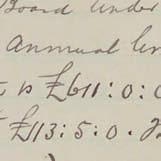 Board under
Annual
is £611:0:0
£113:5:0.